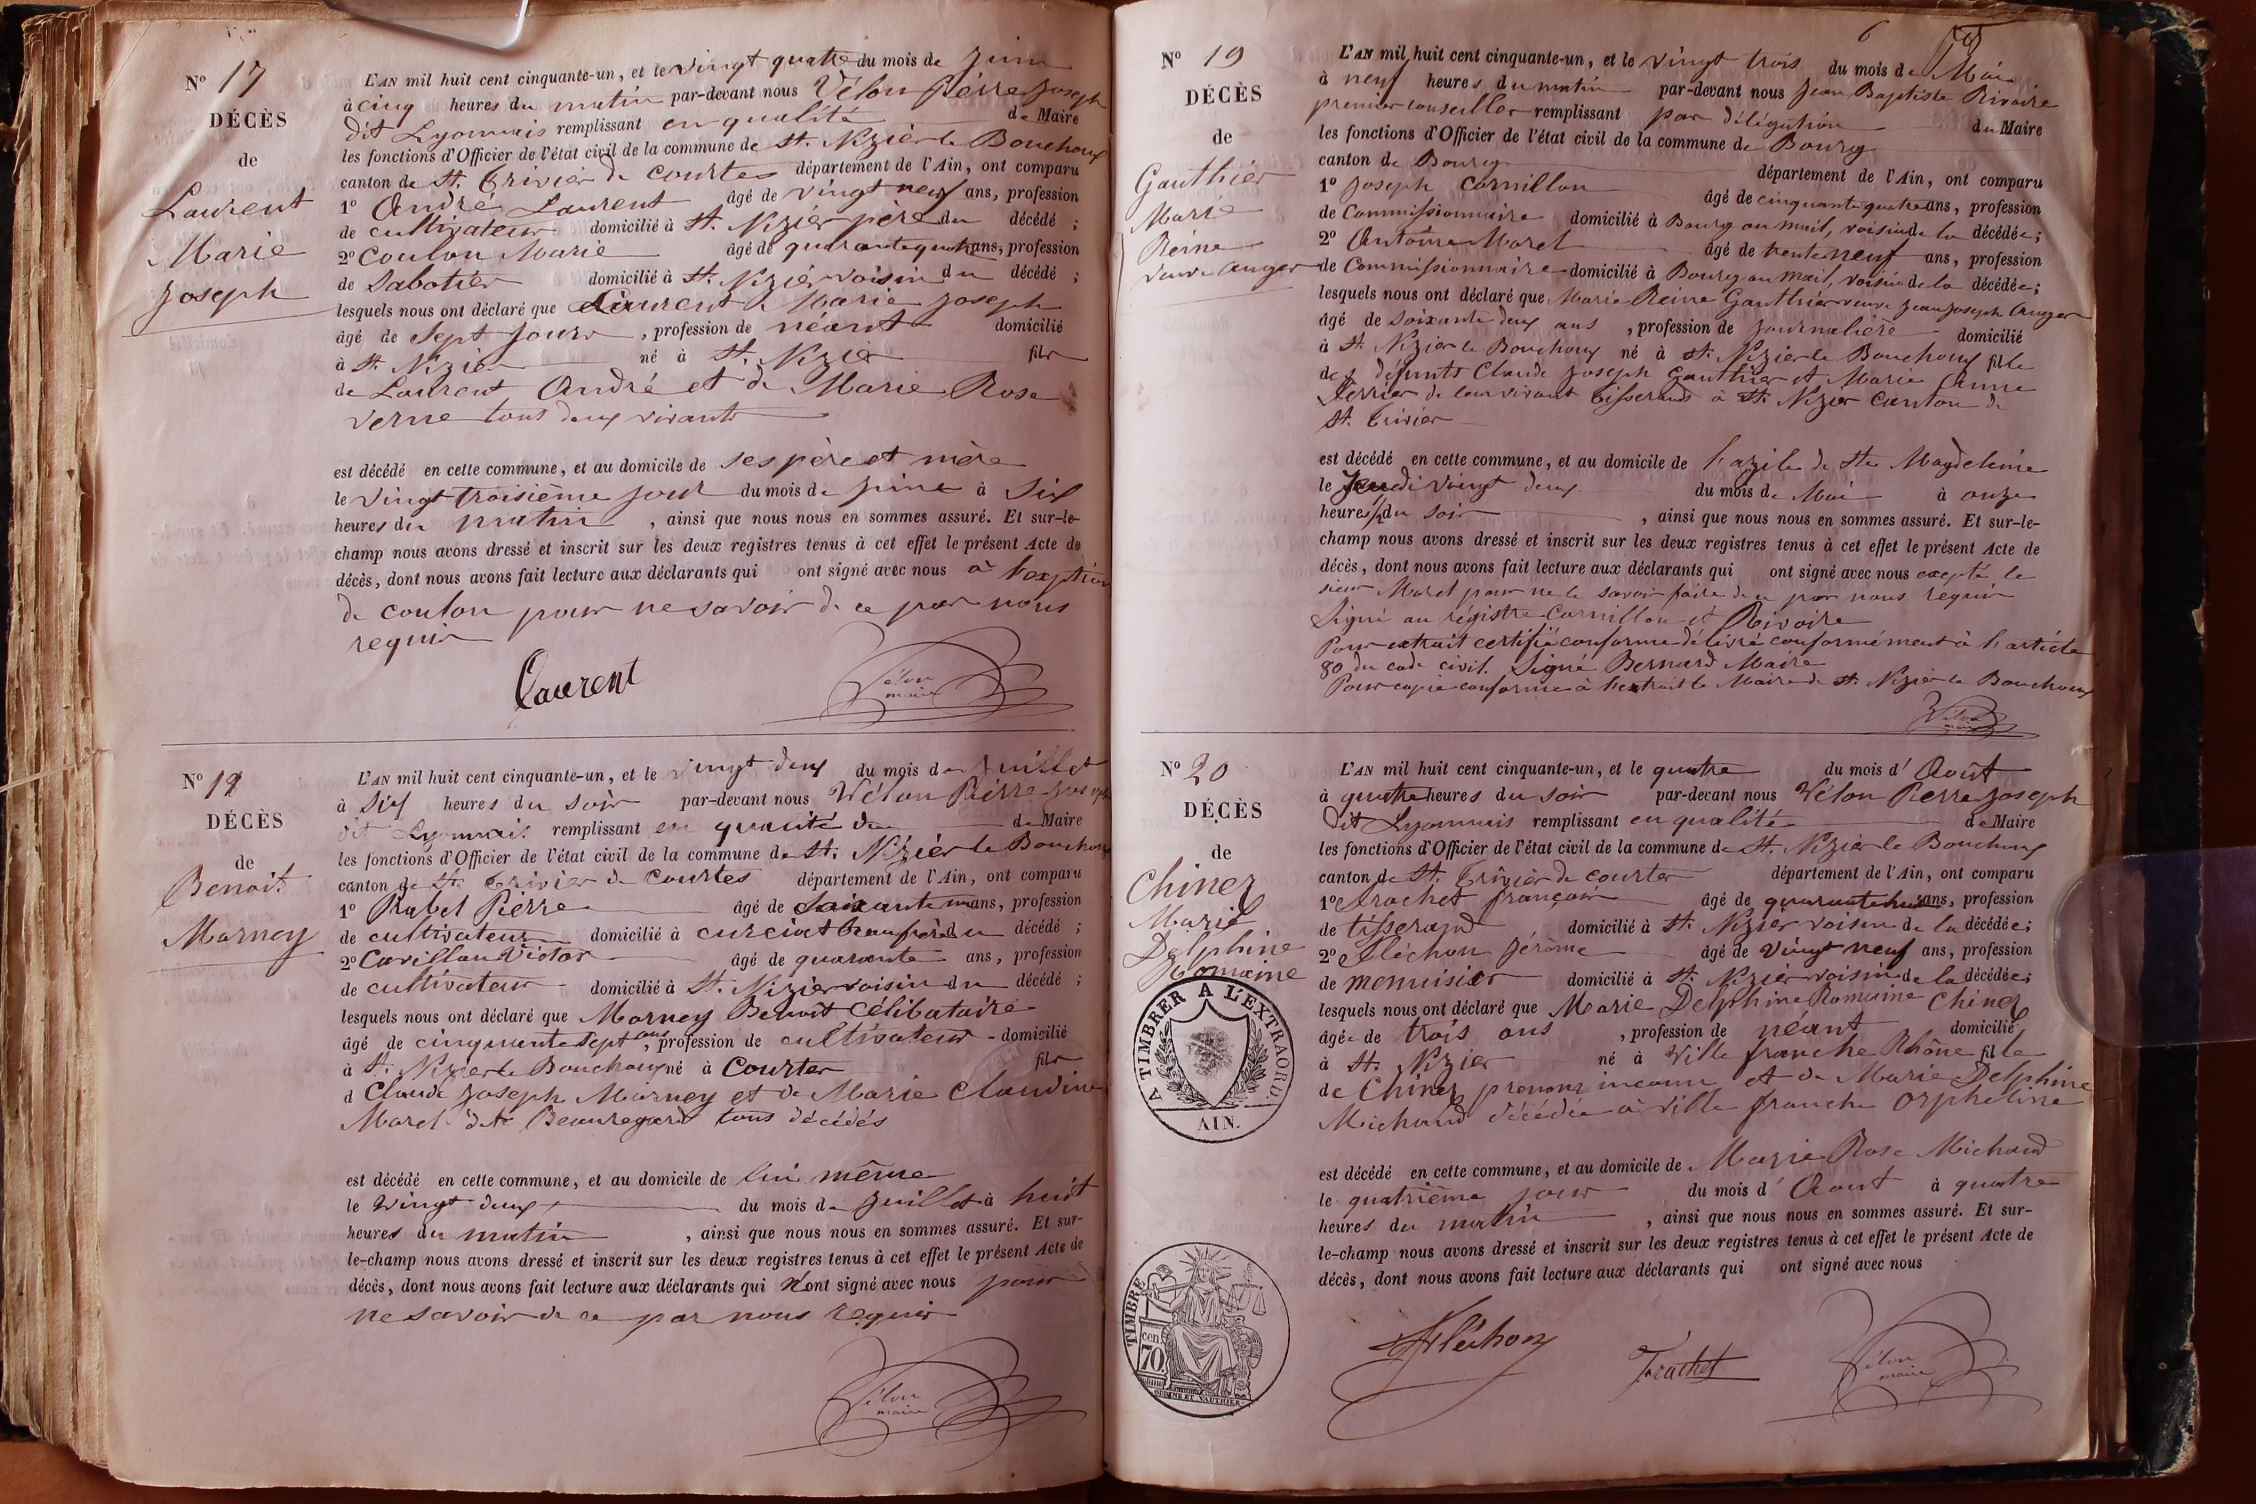 N° 17
DÉCÈS
de
Laurent
Marie
Joseph
L'AN mil huit cent cinquante-un, et le vingt quatre du mois de Juin
à cinq heures du matin par-devant nous Vélon Pierre Joseph
dit Lyonnais remplissant en qualité de Maire
les fonctions d'Officier de l'état civil de la commune de St. Nizier le Bouchoux
canton de St. Trivier de Courtes département de l'Ain, ont comparu
1° André Laurent âgé de vingt neuf ans, profession
de cultivateur domicilié à St. Nizier père du décédé ;
2° Coulon Marie âgé de quarante quatre ans, profession
de Sabotier domicilié à St. Nizier voisin du décédé ;
lesquels nous ont déclaré que Laurent Marie Joseph
âgé de Sept Jours , profession de néant domicilié
à St. Nizier né à St. Nizier fils
de Laurent André et de Marie Rose
Verne tous deux vivants
est décédé en cette commune, et au domicile de ses père et mère
le vingt troisième jour du mois de Juin à Six
heures du matin , ainsi que nous nous en sommes assuré. Et sur-le-
champ nous avons dressé et inscrit sur les deux registres tenus à cet effet le présent Acte de
décès, dont nous avons fait lecture aux déclarants qui ont signé avec nous à l'exption
de coulon pour ne savoir de ce par nous
requis
Laurent
Vélon
maire
N° 18
DÉCÈS
de
Benoit
Morney
L'AN mil huit cent cinquante-un, et le vingt deux du mois de Juillet
à Six heures du soir par-devant nous Vélon Pierre Joseph
dit Lyonnais remplissant en qualité de de Maire
les fonctions d'Officier de l'état civil de la commune de St. Nizier le Bouchoux
canton de St. Trivier de Courtes département de l'Ain, ont comparu
1° Rabel Pierre âgé de Soixante un ans, profession
de cultivateur domicilié à curciat beaufrère du décédé ;
2° Cavillon Victor âgé de quarante ans, profession
de cultivateur domicilié à St. Nizier voisin du décédé ;
lesquels nous ont déclaré que Morney Benoit Célibataire
âgé de cinquante sept ans, profession de cultivateur domicilié
à St. Nizier le Bouchoux né à Courtes fils
d Claude Joseph Morney et de Marie Claudine
Morel dite Beauregard tous décédés
est décédé en cette commune, et au domicile de lui même
le vingt deux du mois de Juillet à huit
heures du matin , ainsi que nous nous en sommes assuré. Et sur-
le-champ nous avons dressé et inscrit sur les deux registres tenus à cet effet le présent Acte de
décès, dont nous avons fait lecture aux déclarants qui n'ont signé avec nous pour
ne savoir de ce par nous requis
Vélon
maire
6
N° 19
DÉCÈS
de
Gauthier
Marie
Reine
veuve Auger
L'AN mil huit cent cinquante-un, et le vingt trois du mois de Mai
à neuf heures du matin par-devant nous Jean Baptiste Rivoire
premier conseiller remplissant par délégation du Maire
les fonctions d'Officier de l'état civil de la commune de Bourg
canton de Bourg département de l'Ain, ont comparu
1° Joseph Cornillon âgé de cinquante quatre ans, profession
de Commissionnaire domicilié à Bourg au mail, voisin de la décédée ;
2° Antoine Morel âgé de trente neuf ans, profession
de Commissionnaire domicilié à Bourg au mail, voisin de la décédée ;
lesquels nous ont déclaré que Marie Reine Gauthier veuve Jean Joseph Auger
âgé de soixante deux ans , profession de Journalière domicilié
à St. Nizier le Bouchoux né à St. Nizier le Bouchoux fille
des défunts Claude Joseph Gauthier et Marie Anne
Perrier de leur vivant tisserands à St. Nizier Canton de
St. Trivier
est décédé en cette commune, et au domicile de l'azile de Ste Magdeleine
le Jeudi vingt deux du mois de Mai à onze
heures 1/2 du soir , ainsi que nous nous en sommes assuré. Et sur-le-
champ nous avons dressé et inscrit sur les deux registres tenus à cet effet le présent Acte de
décès, dont nous avons fait lecture aux déclarants qui ont signé avec nous excepté le
sieur Morel pour ne le savoir faire de ce par nous requis
Signé au régistre Cornillon et Rivoire
Pour extrait certifié conforme délivré conformément à l'article
80 du code civil. Signé Bernard Maire
Pour copie conforme à l'extrait le Maire de St. Nizier le Bouchoux
Vélon
maire
N° 20
DÉCÈS
de
Chinez
Marie
Delphine
Romaine
A TIMBRER A L'EXTRAORD.
AIN.
TIMBRE
70
cen
L'AN mil huit cent cinquante-un, et le quatre du mois d' Août
à quatre heures du soir par-devant nous Vélon Pierre Joseph
dit Lyonnais remplissant en qualité de Maire
les fonctions d'Officier de l'état civil de la commune de St. Nizier le Bouchoux
canton de St. Trivier de courtes département de l'Ain, ont comparu
1° Trachet françois âgé de quarante huit ans, profession
de tisserand domicilié à St. Nizier voisin de la décédée ;
2° Fléchon Jérôme âgé de vingt neuf ans, profession
de menuisier domicilié à St. Nizier voisin de la décédée ;
lesquels nous ont déclaré que Marie Delphine Romaine Chinez
âgée de trois ans , profession de néant domicilié
à St. Nizier né à Ville franche Rhône fille
de Chinez prenom inconnu et de Marie Delphine
Michaud décédée à ville franche orpheline
est décédé en cette commune, et au domicile de Marie Rose Michaud
le quatrième jour du mois d' Aout à quatre
heures du matin , ainsi que nous nous en sommes assuré. Et sur-
le-champ nous avons dressé et inscrit sur les deux registres tenus à cet effet le présent Acte de
décès, dont nous avons fait lecture aux déclarants qui ont signé avec nous
Fléchon
Trachet
Vélon
maire